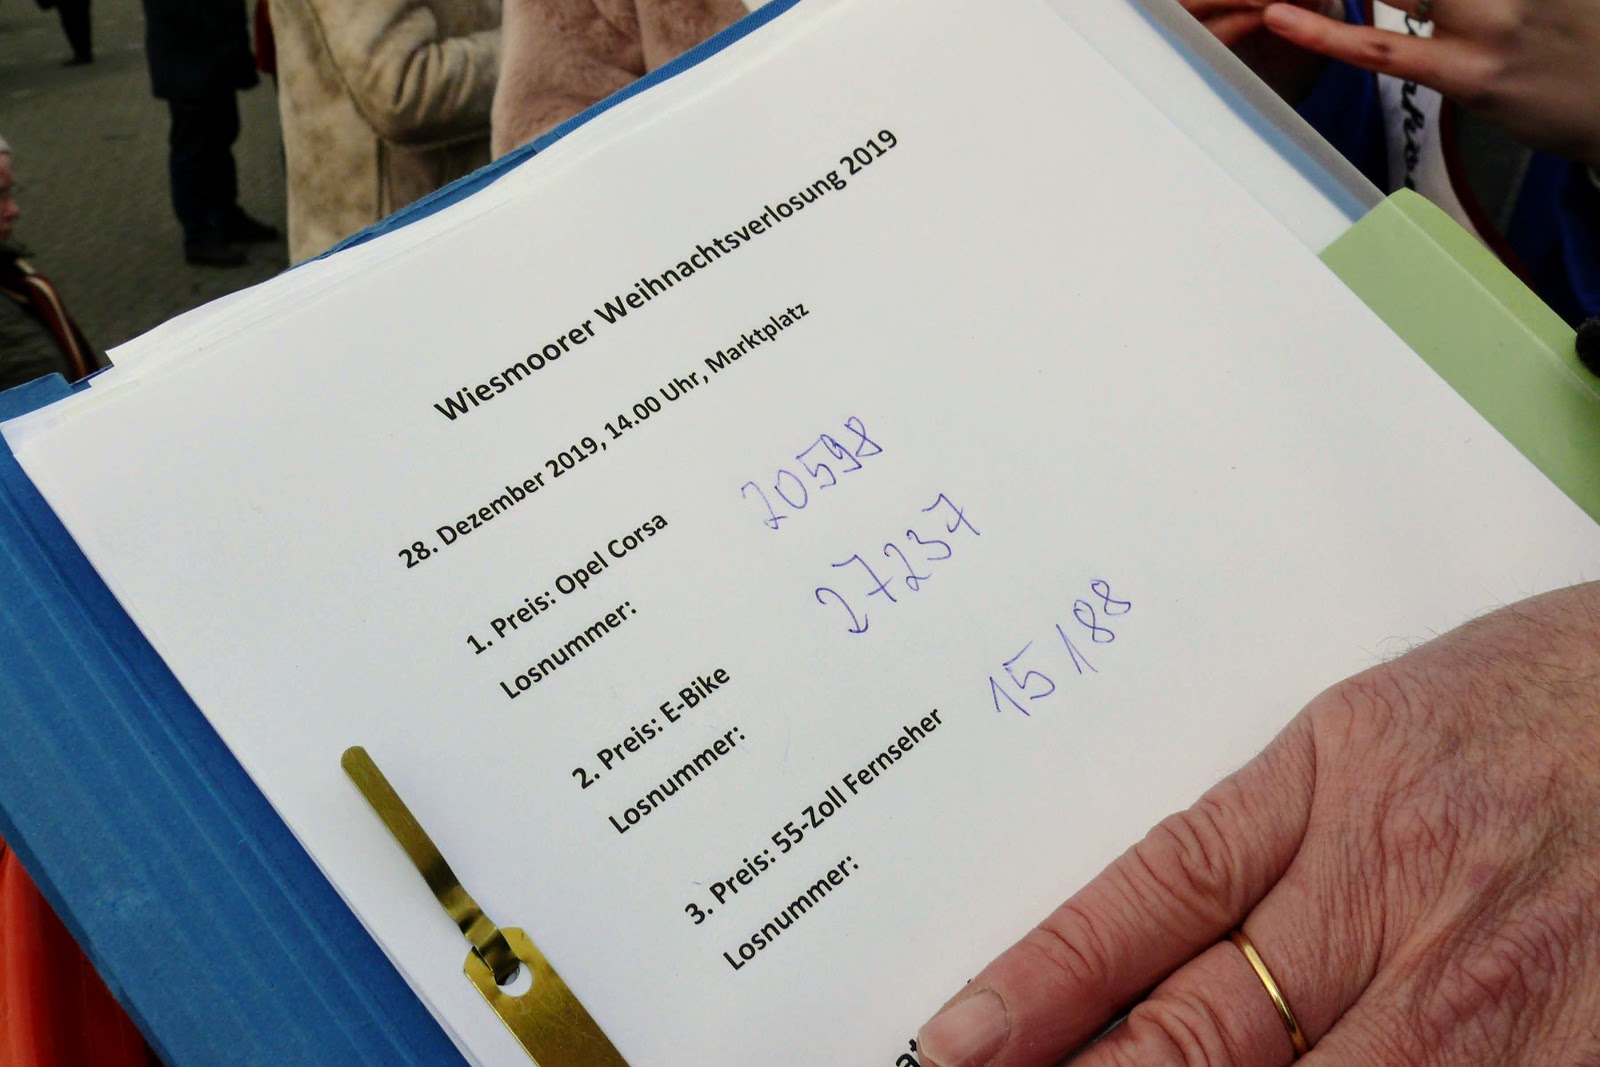 Wiesmoorer Weihnachtsverlosung 2019
28. Dezember 2019, 14.00 Uhr, Marktplatz
1. Preis: Opel Corsa
Losnummer: 20598
2. Preis: E-Bike
Losnummer: 27237
3. Preis: 55-Zoll Fernseher
Losnummer: 15188